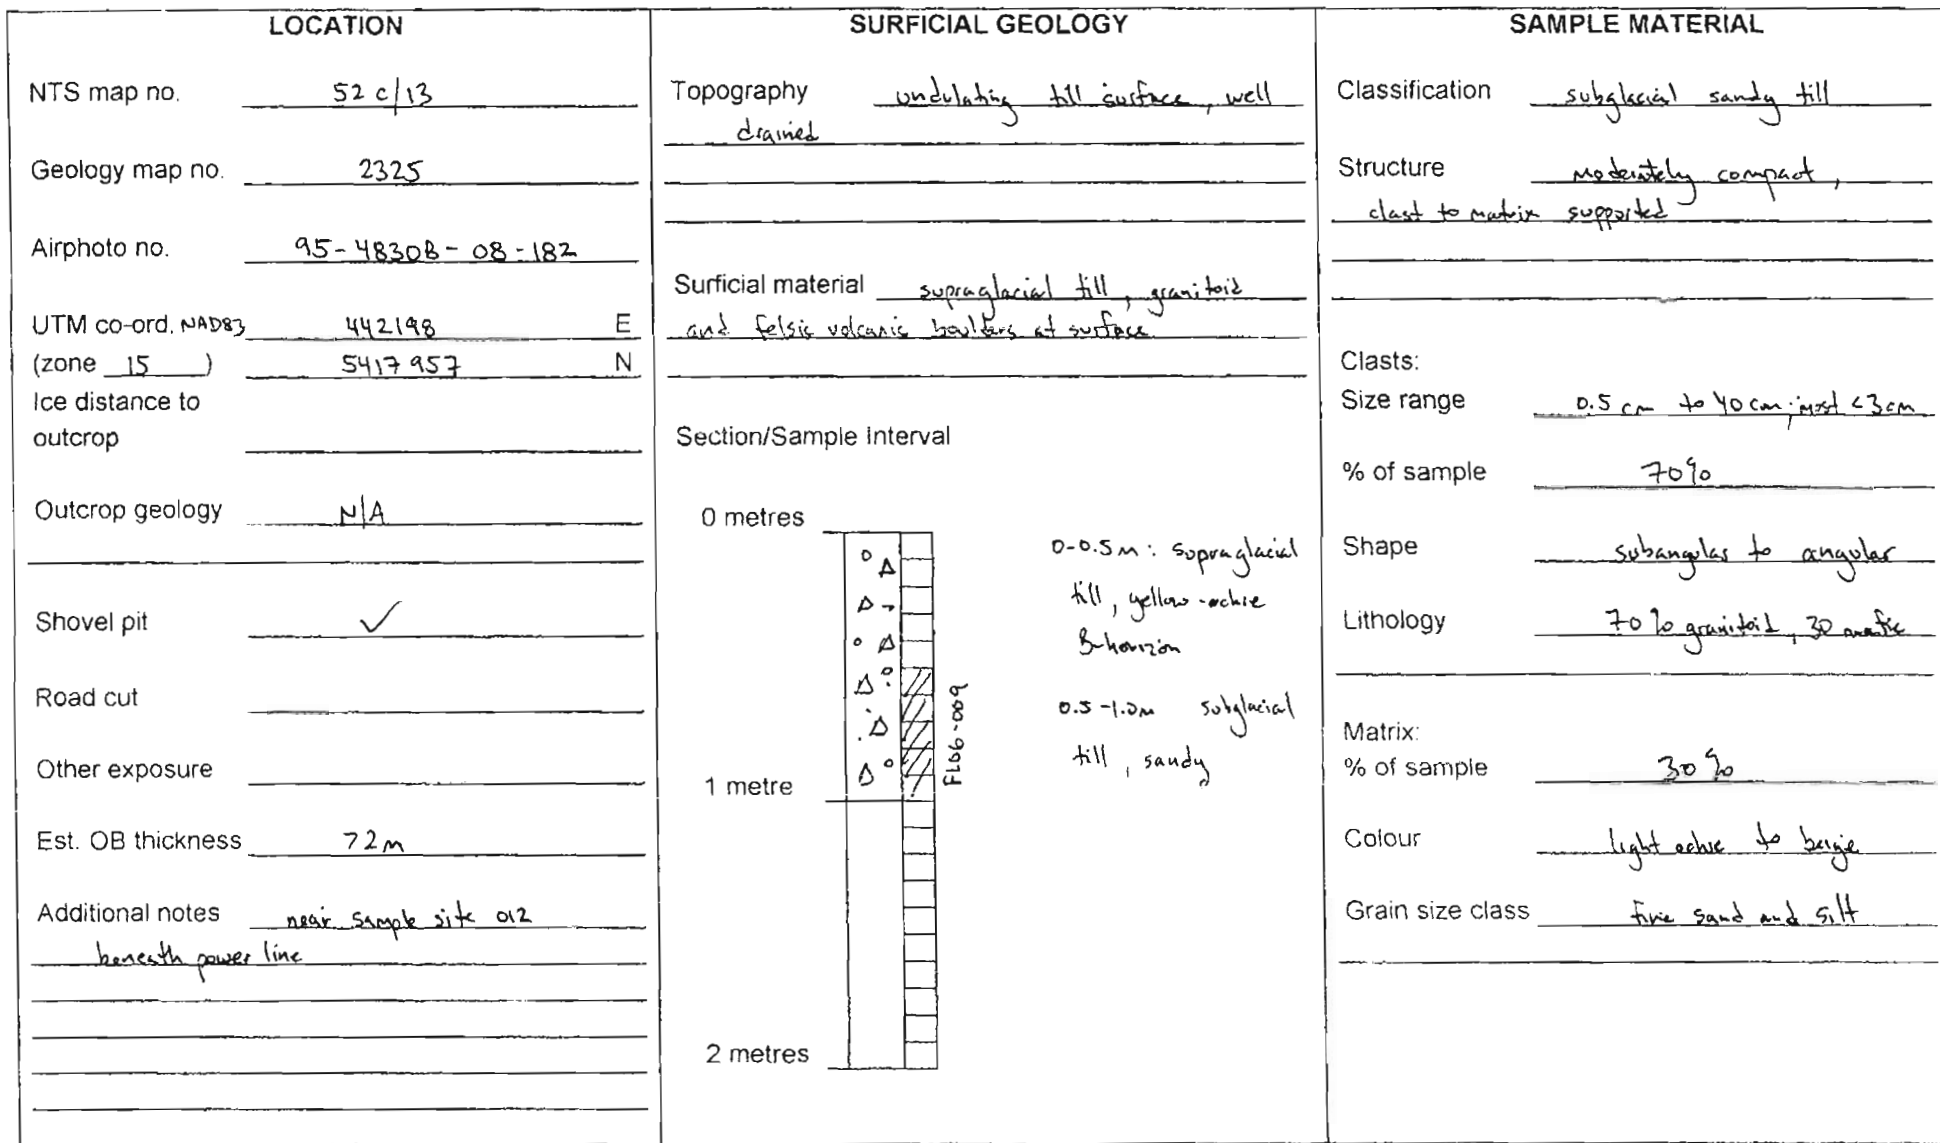 LOCATION
NTS map no. 52 c/13
Geology map no. 2325
Airphoto no. 95-4830B-08-182
UTM co-ord. NAD83 442198 E
(zone 15 ) 5417957 N
Ice distance to
outcrop
Outcrop geology N/A
Shovel pit ✓
Road cut
Other exposure
Est. OB thickness 72m
Additional notes near sample site 012
beneath power line
SURFICIAL GEOLOGY
Topography undulating till surface, well
drained
Surficial material supraglacial till, granitoid
and felsic volcanic boulders at surface
Section/Sample Interval
0 metres
1 metre
2 metres
0-0.5m: supraglacial
till, yellow-ochre
B-horizon
0.5-1.0m subglacial
till, sandy
SAMPLE MATERIAL
Classification subglacial sandy till
Structure moderately compact,
clast to matrix supported
Clasts:
Size range 0.5 cm to 40 cm; most <3 cm
% of sample 70%
Shape subangular to angular
Lithology 70% granitoid, 30 mafic
Matrix:
% of sample 30%
Colour light ochre to beige
Grain size class fine sand and silt